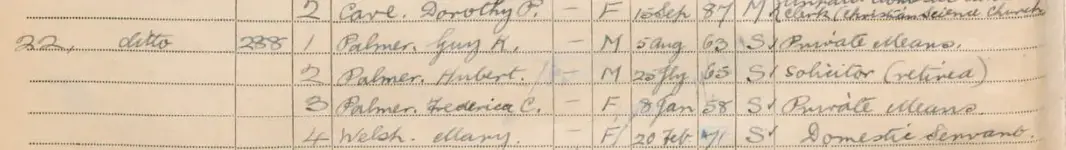 2 Cave. Dorothy P. – F 15 Sep 87 M Clerk (Christian Science Church
22, ditto 288 1 Palmer. Guy K. – M 5 Aug 63 S Private Means.
2 Palmer. Hubert. – M 25 Jly 65 S Solicitor (retired)
3 Palmer. Federica C. – F 8 Jan 58 S Private Means.
4 Welsh. Mary – F 20 Feb 71 S Domestic Servant.